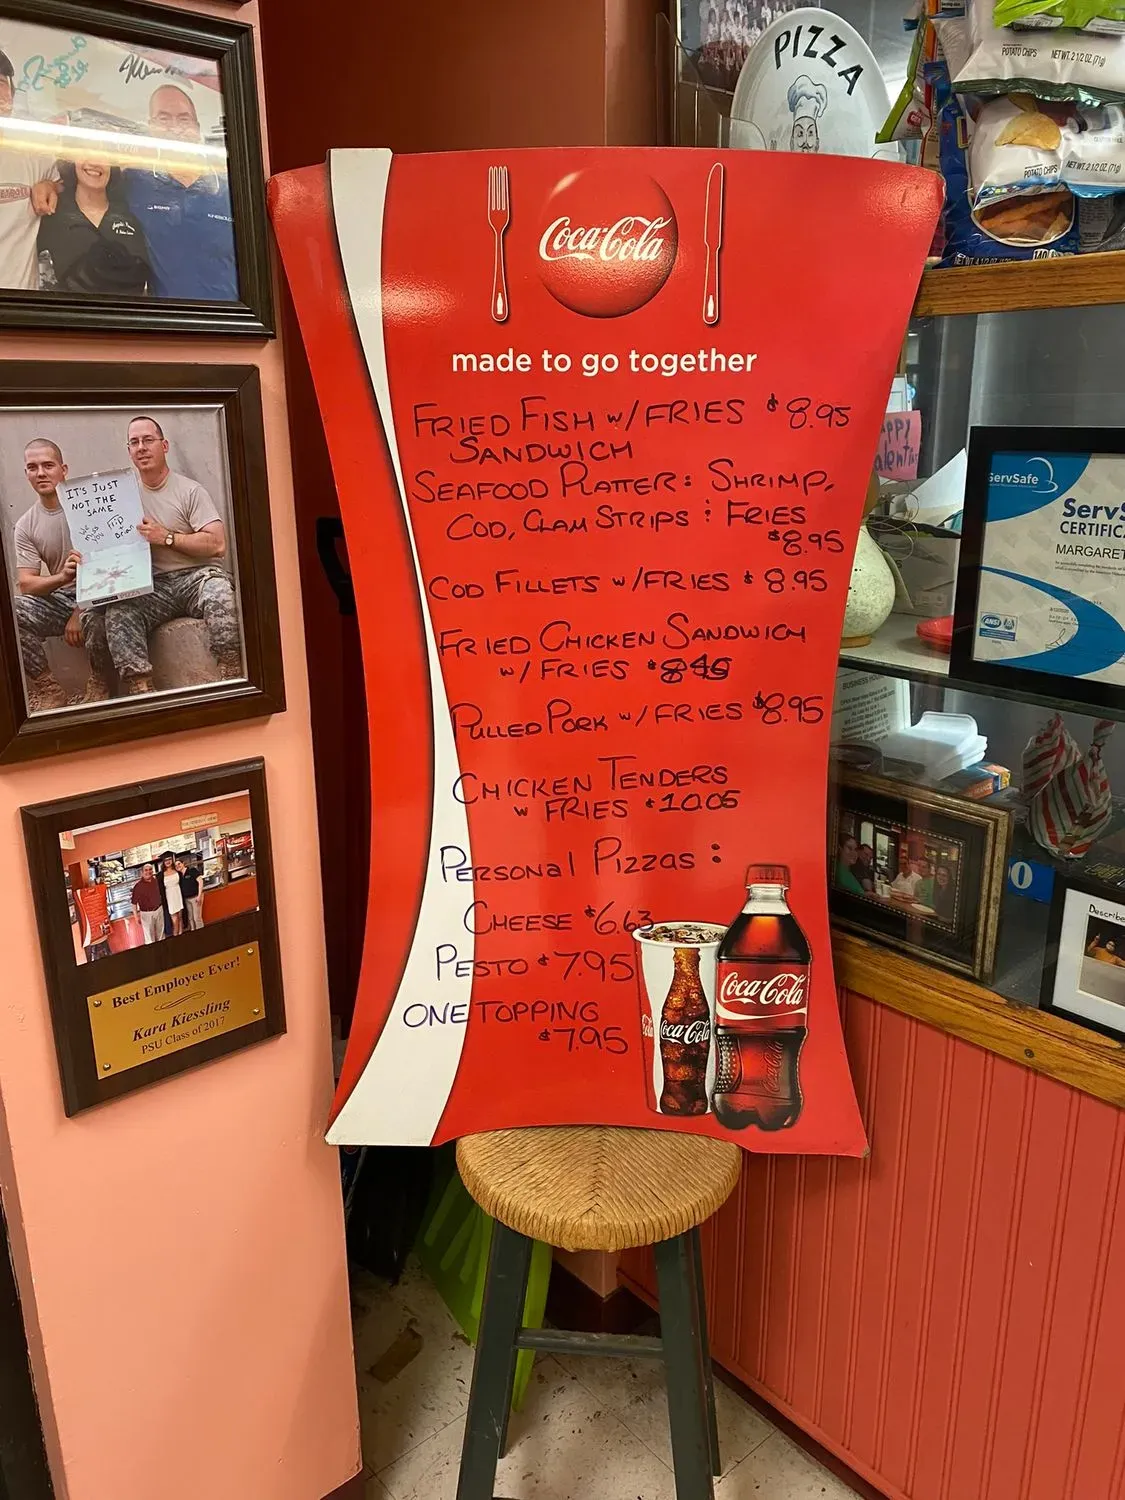 PIZZA
POTATO CHIPS
NET WT. 2 1/2 OZ. (71g)
POTATO CHIPS
NET WT. 2 1/2 OZ. (71g)
Coca-Cola
made to go together
FRIED FISH w/FRIES $8.95
SANDWICH
SEAFOOD PLATTER: SHRIMP,
COD, CLAM STRIPS : FRIES
$8.95
COD FILLETS w/FRIES $8.95
FRIED CHICKEN SANDWICH
w/FRIES
PULLED PORK w/FRIES $8.95
CHICKEN TENDERS
w FRIES $10.05
PERSONAL PIZZAS :
CHEESE $6.63
PESTO $7.95
ONE TOPPING
$7.95
Coca-Cola
Coca-Cola
IT'S JUST
NOT THE
SAME
We
miss
you
Best Employee Ever!
Kara Kiessling
PSU Class of 2017
ServSafe
ServS
CERTIFICA
MARGARET
ANSI
BUSINESS
Describe